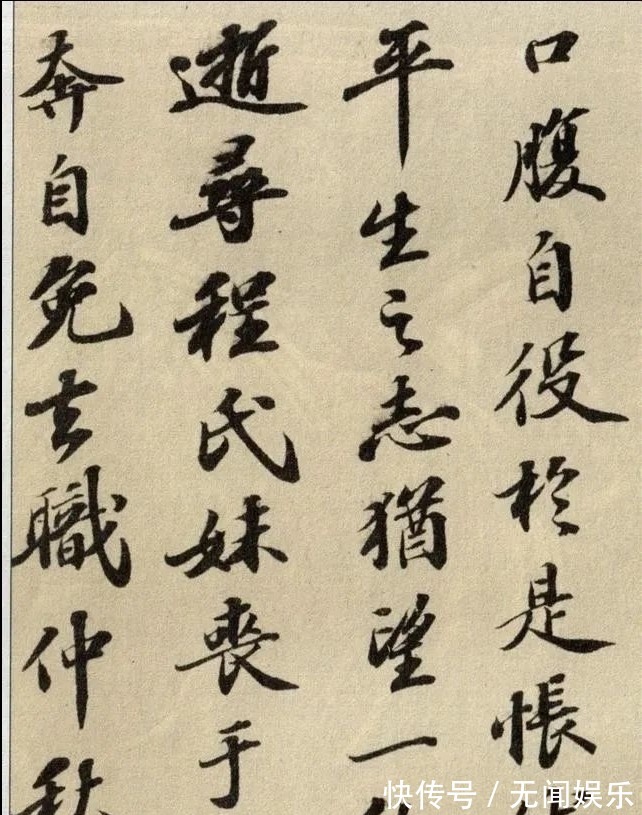 口腹自役於是悵
平生之志猶望一
逝尋程氏妹喪于
奔自免去職仲秋
快传号 / 无闻娱乐